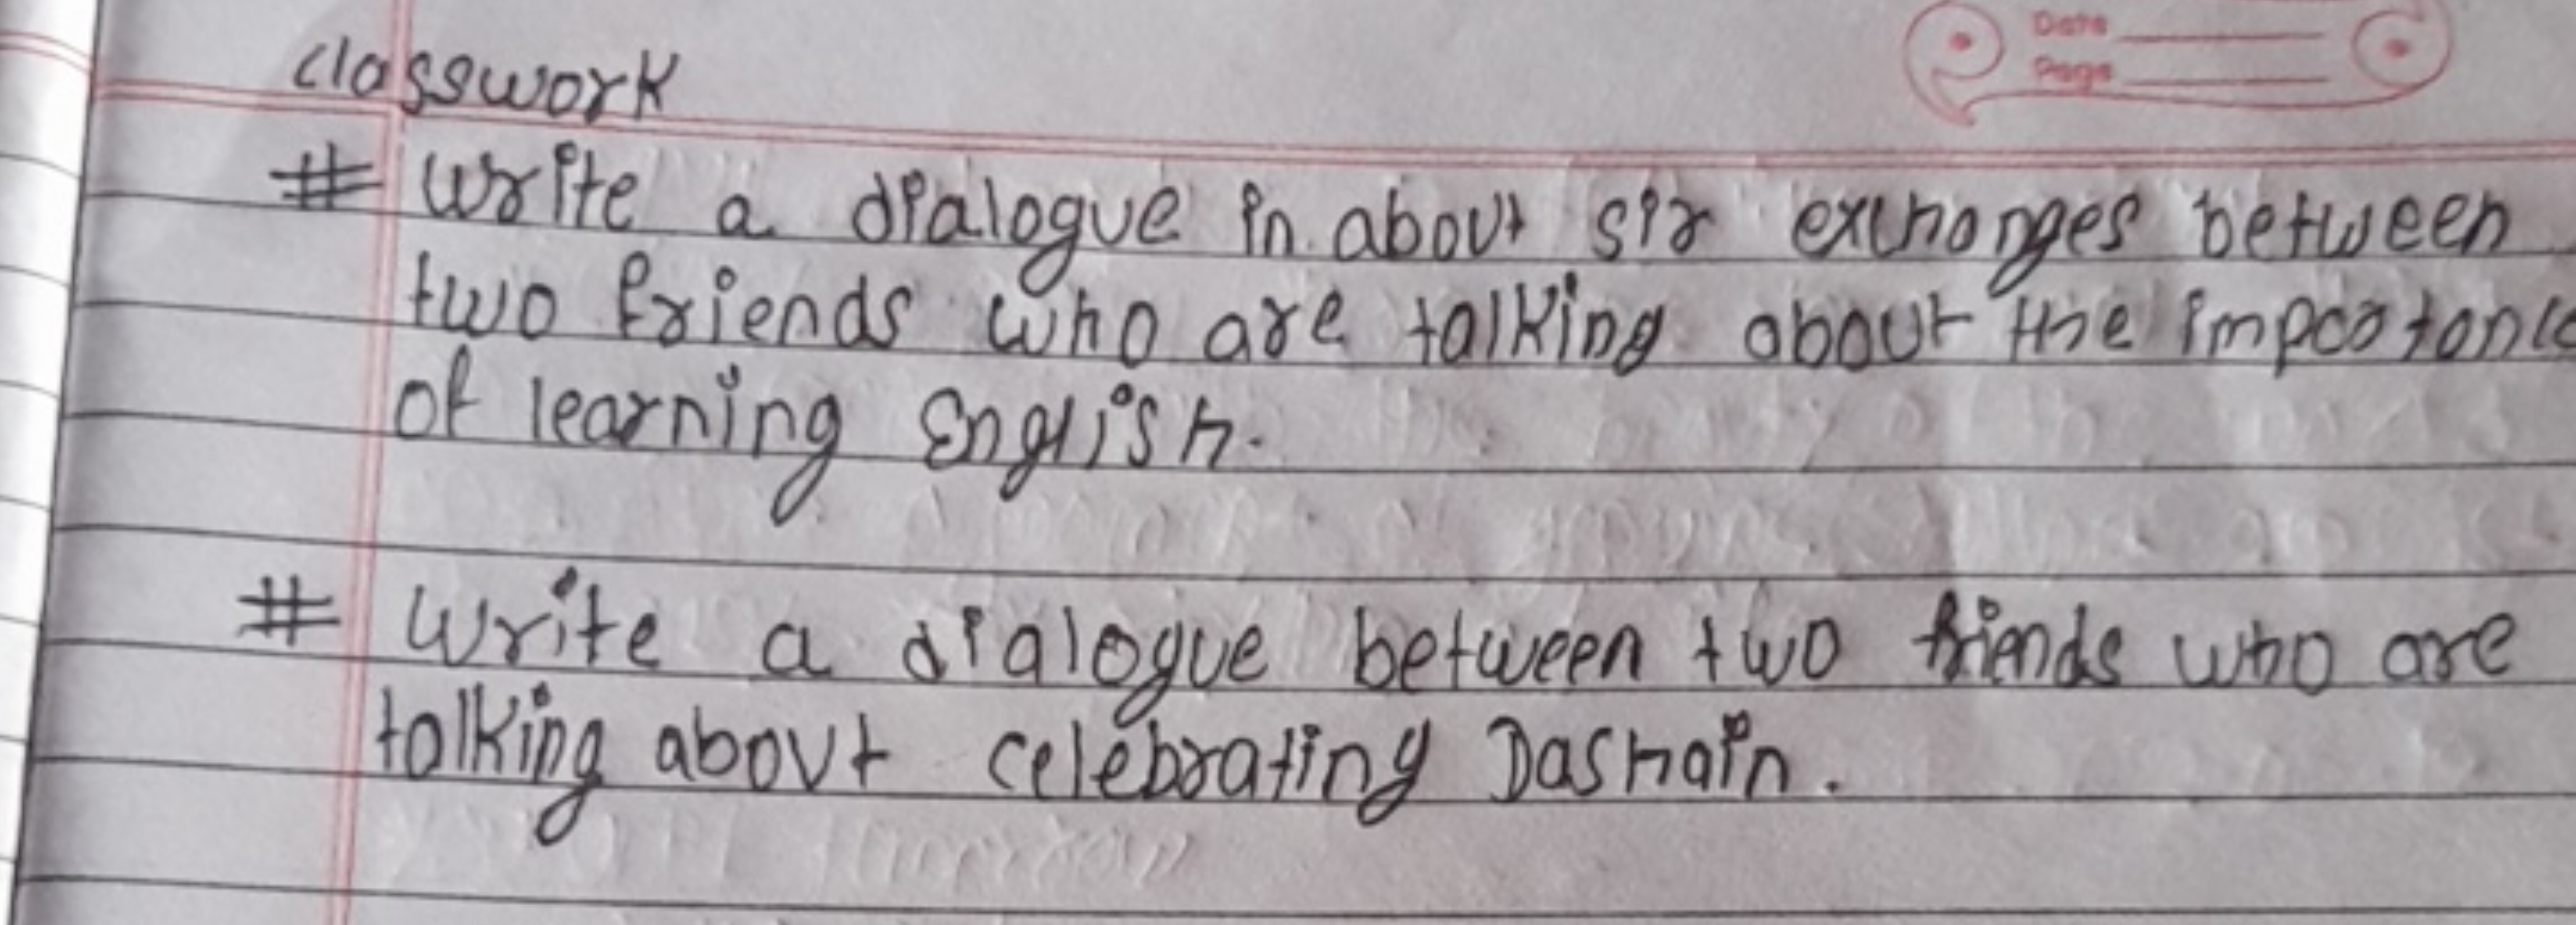 Date
Page
classwork
# write a dialogue in about six exchanges between
two friends who are talking about the importanc
of learning English.
# Write a dialogue between two friends who are
talking about celebrating Dashain.